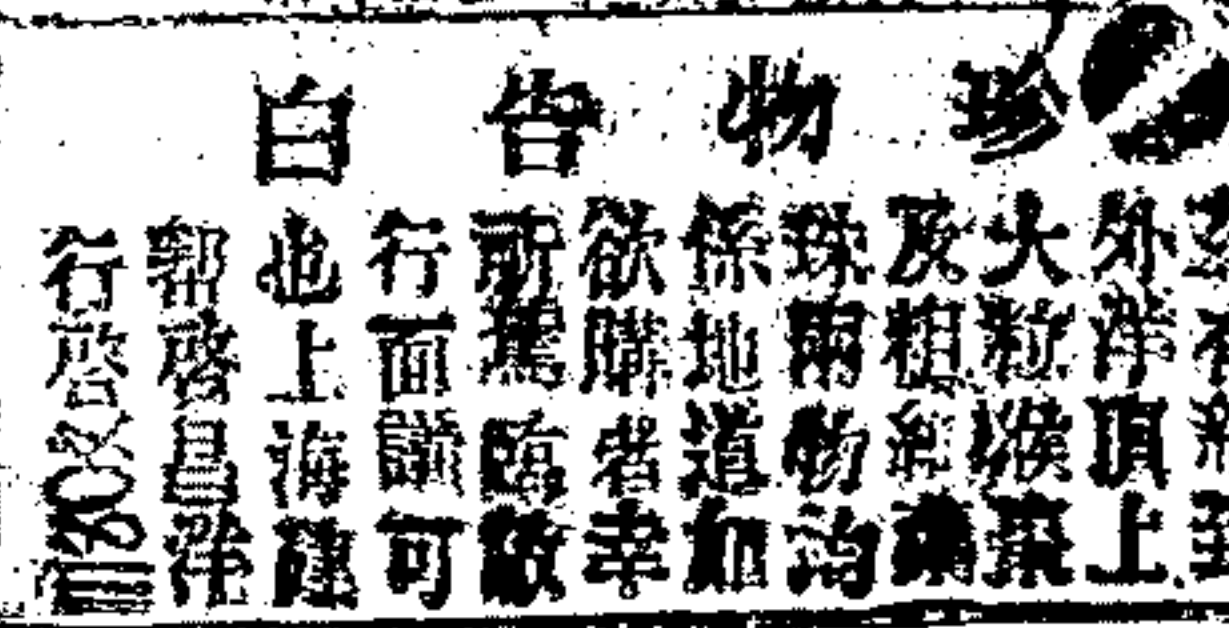 珍物告白
外洋頂上
大粒猴棗
及粗紅
珠兩物沟
係地道如
欲購者幸
所駕臨敝
行面議可
也上海隆
啓昌洋
行啓